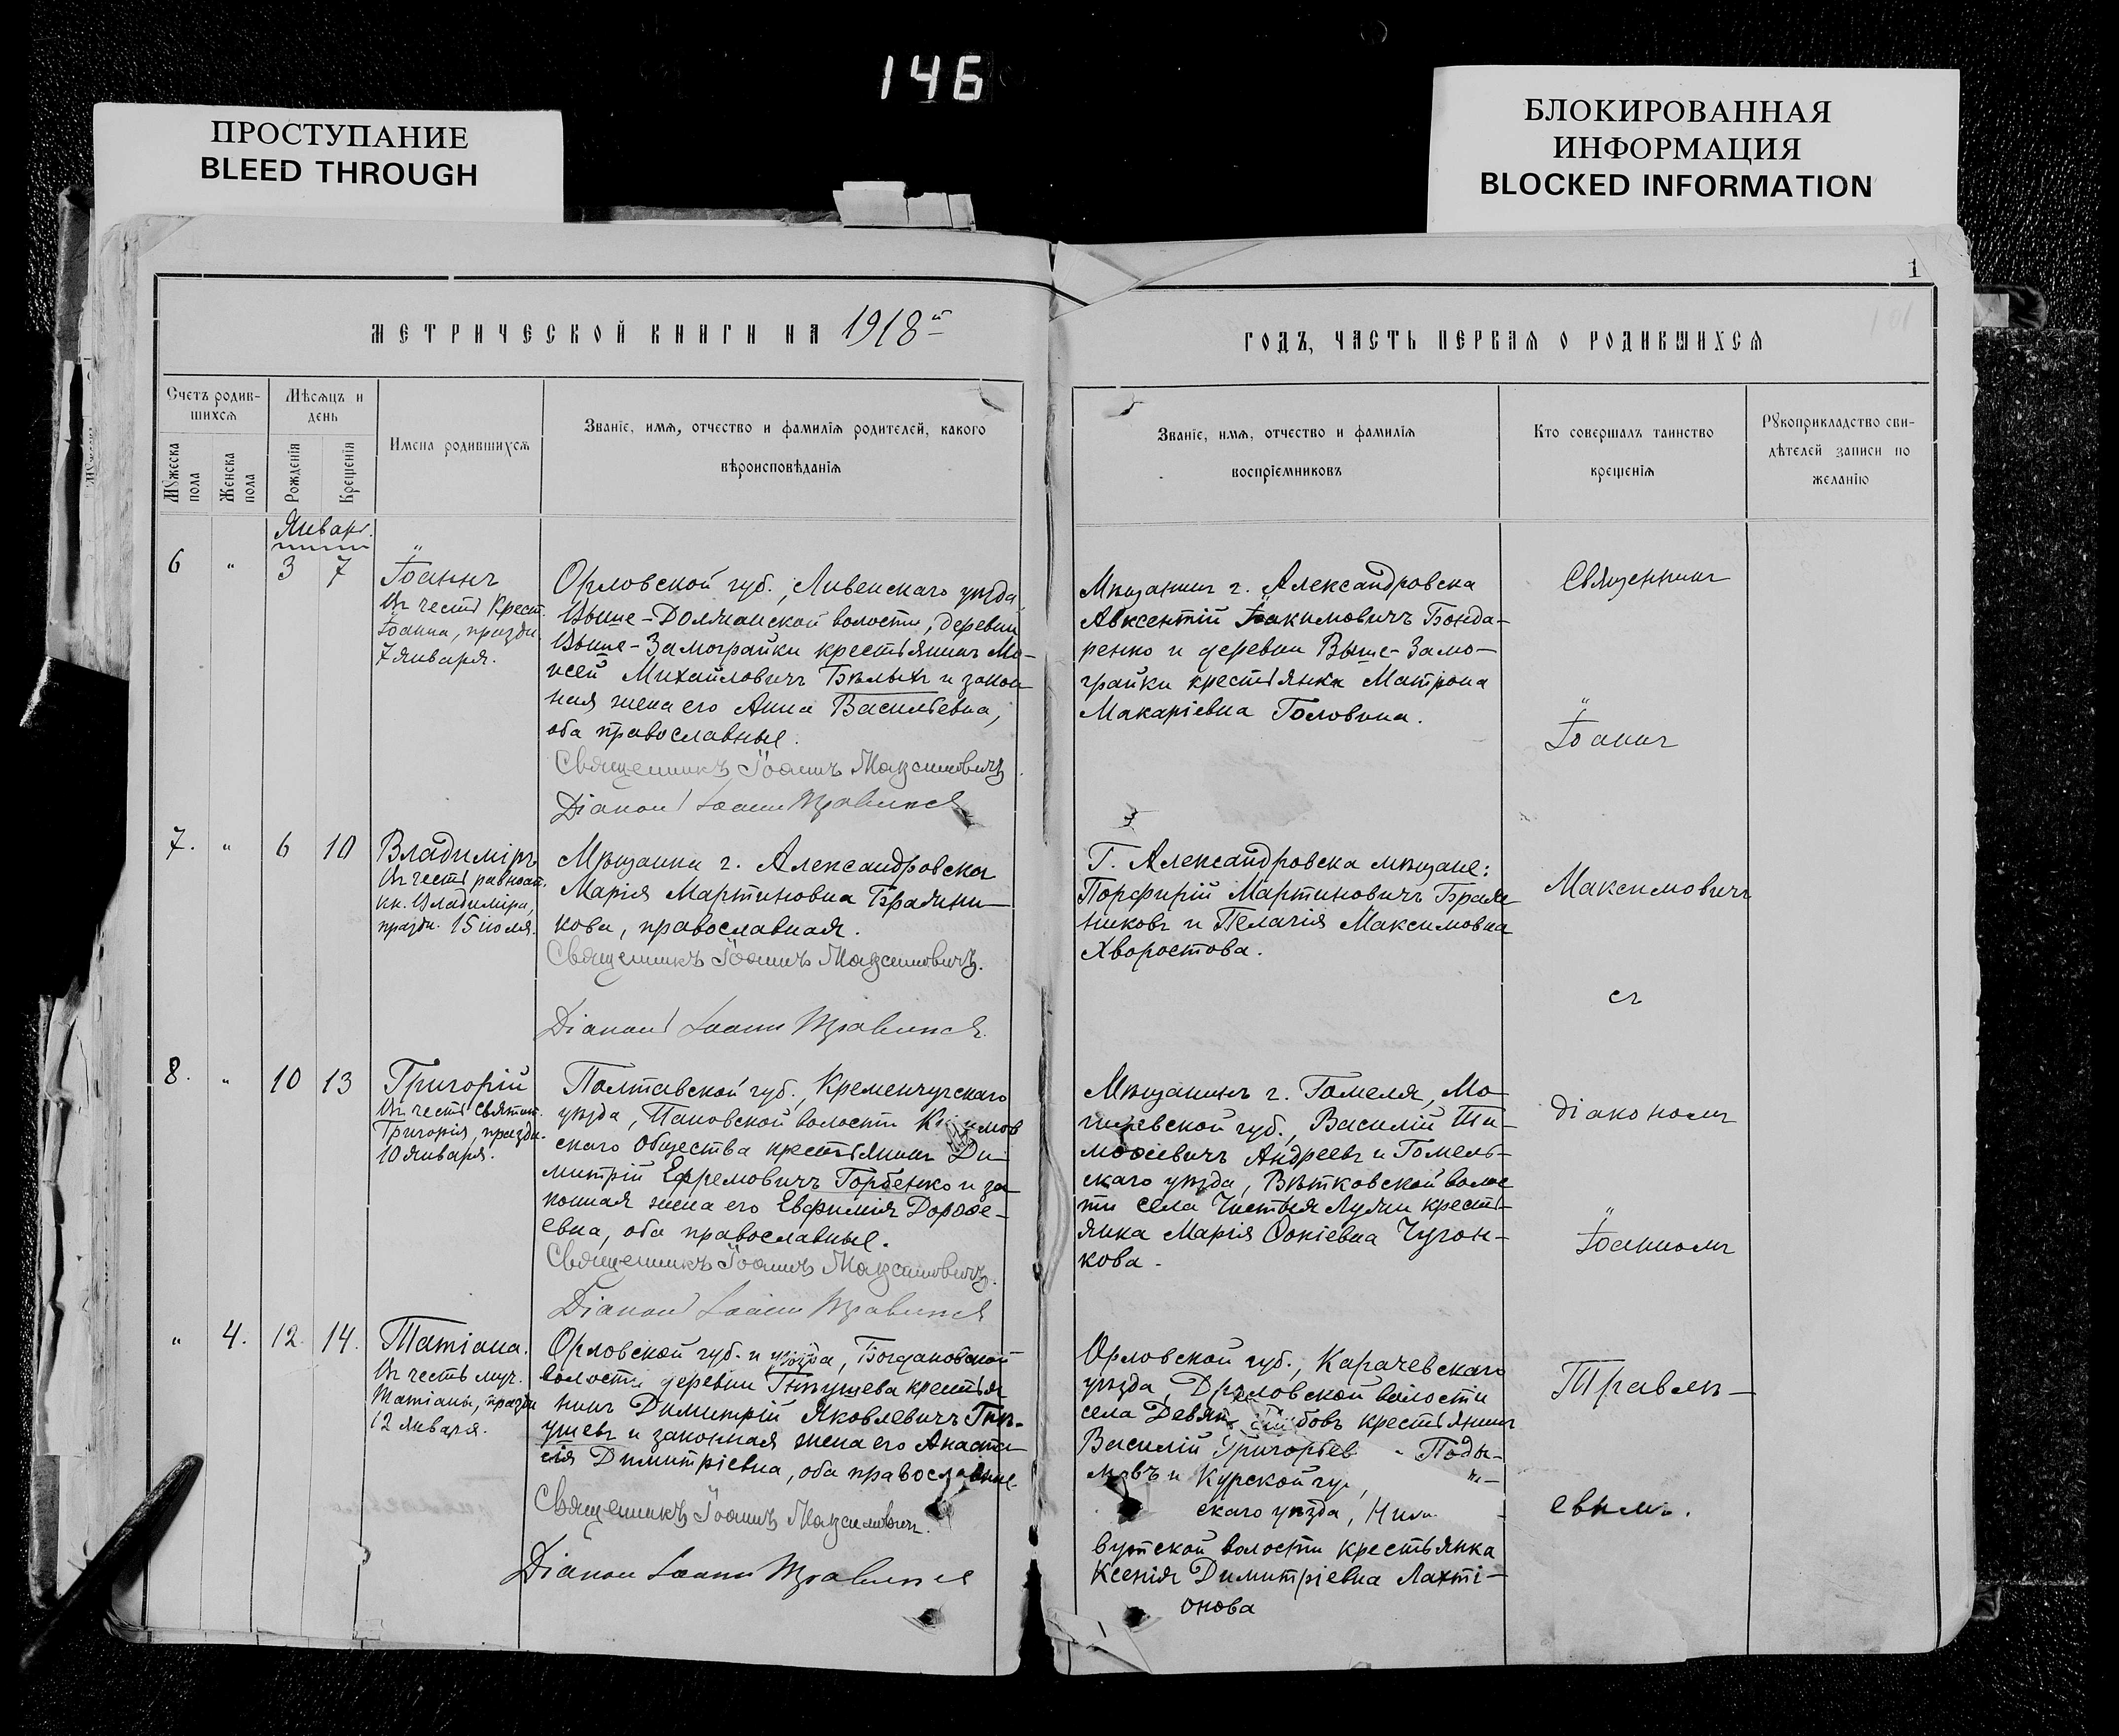 146
ПРОСТУПАНИЕ
BLEED THROUGH
БЛОКИРОВАННАЯ
ИНФОРМАЦИЯ
BLOCKED INFORMATION
1
МЕТРИЧЕСКОЙ КНИГИ НА 1918й
ГОДЪ, ЧАСТЬ ПЕРВАЯ О РОДИВШИХСЯ
Счетъ родив-
шихся
Мужеска
пола
Женска
пола
Мѣсяцъ и
день
Рожденія
Крещенія
Имена родившихся
Званіе, имя, отчество и фамилія родителей, какого
вѣроисповѣданія
Званіе, имя, отчество и фамилія
воспріемниковъ
Кто совершалъ таинство
крещенія
Рукоприкладство сви-
дѣтелей записи по
желанію
Январь.
6 " 3 7
Іоаннъ
Въ честь Крест.
Іоанна, праздн.
7 января.
Орловской губ., Ливенскаго уѣзда,
Выше-Должанской волости, деревни
Выше-Замограйки крестьянинъ Мо-
исей Михайловичъ Бѣлыхъ и закон
ная жена его Анна Васильевна,
оба православные.
Священникъ Іоаннъ Максимовичъ.
Діаконъ Іоаннъ Травлев
Мѣщанинъ г. Александровска
Авксентій Іоакимовичъ Бонда-
ренко и деревни Выше-Замо-
грайки крестьянка Матрона
Макаріевна Головина.
7. " 6 10
Владиміръ
Въ честь равноап.
кн. Владиміра,
праздн. 15 іюля.
Мѣщанка г. Александровска
Марія Мартиновна Бражни-
кова, православная.
Священникъ Іоаннъ Максимовичъ.
Діаконъ Іоаннъ Травлев
Г. Александровска мѣщане:
Порфирій Мартиновичъ Браж-
никовъ и Пелагія Максимовна
Хворостова.
8. " 10 13
Григорій
Въ честь Святит.
Григорія, праздн.
10 января.
Полтавской губ., Кременчугскаго
уѣзда, волости
скаго общества крестьянинъ Ди-
митрій Ефремовичъ Горбенко и за
конная жена его Евфимія Дороѳе-
евна, оба православные.
Священникъ Іоаннъ Максимовичъ.
Діаконъ Іоаннъ Травлев
Мѣщанинъ г. Гомеля, Мо-
гилевской губ., Василій Ти-
моѳіевичъ Андреевъ и Гомель-
скаго уѣзда, Вѣтковской волос
ти села Чистыя Лужи кресть-
янка Марія Ѳокіевна Чугон-
кова.
" 4. 12. 14.
Татіана.
Въ честь муч.
Татіаны, праздн
12 января.
Орловской губ. и уѣзда, Богдановской
волости деревни Гнѣушева крестья
нинъ Димитрій Яковлевичъ Гнѣ-
ушевъ и законная жена его Анаста-
сія Димитріевна, оба православные.
Священникъ Іоаннъ Максимовичъ.
Діаконъ Іоаннъ Травлев
Орловской губ., Карачевскаго
уѣзда, волости
села крестьянинъ
Василій Григорьев Поды-
мовъ и Курской гу ,
скаго уѣзда,
волости крестьянка
Ксенія Димитріевна Лахті-
онова
Священникъ
Іоаннъ
Максимовичъ
съ
діакономъ
Іоанномъ
Травлѣ-
евымъ.